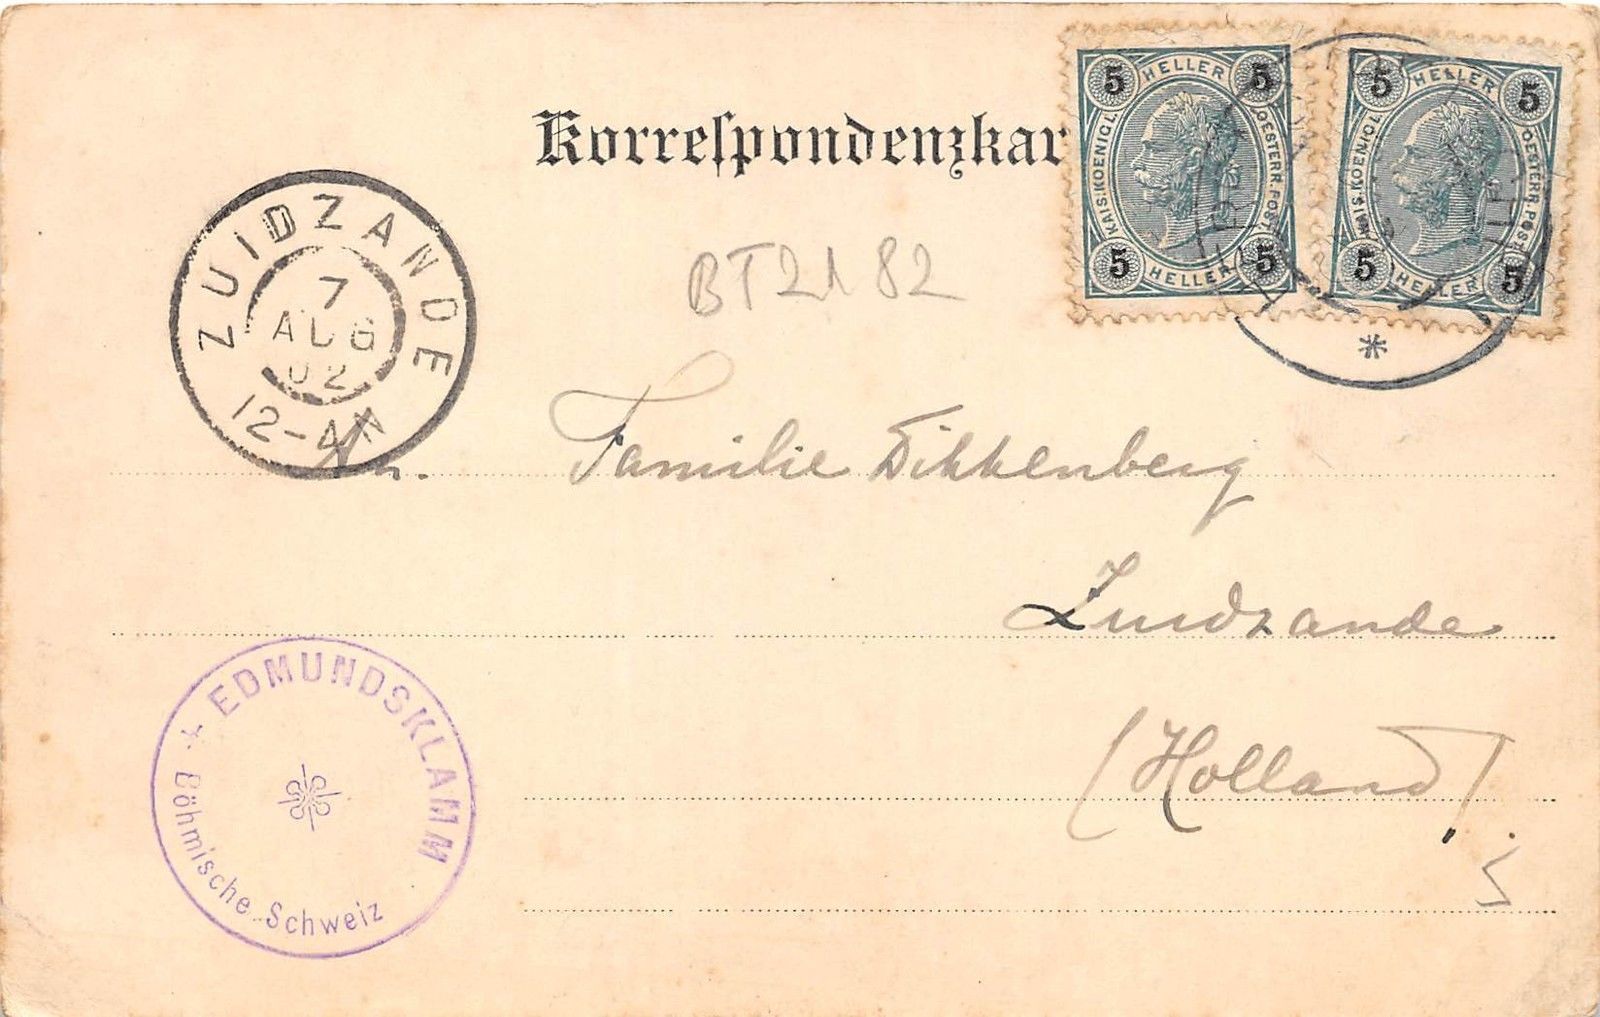 Korreſpondenzkar
5 HELLER 5
KAIS. KOENIGL. OESTERR. POST
5 HELLER 5
5 HELLER 5
KAIS. KOENIGL. OESTERR. POST
5 HELLER 5
ZUIDZANDE
7
AUG
02
12-4N
BT2182
An. Familie Dikkenberg
Zuidzande
(Holland)
5
* EDMUNDSKLAMM
Böhmische Schweiz